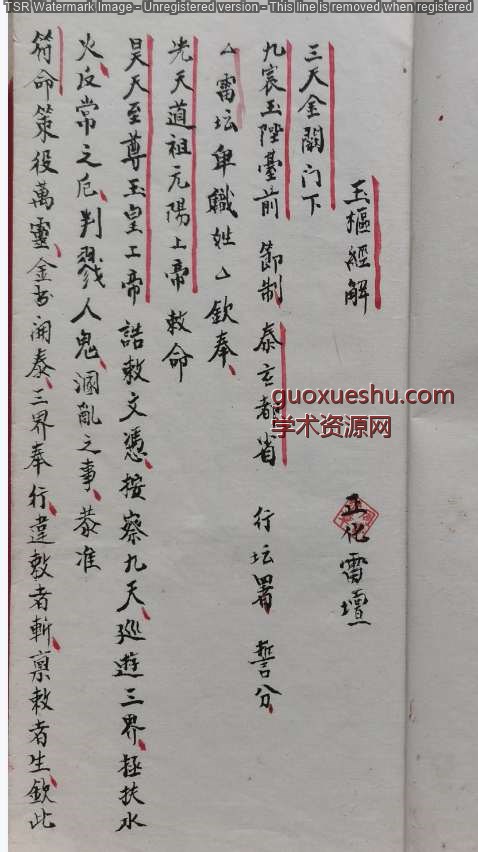 TSR Watermark Image - Unregistered version - This line is removed when registered
玉樞經解 正化雷壇
三天金闕门下
九宸玉陛臺前 節制 泰玄都省 行坛署 誓分
厶雷坛卑職姓厶 欽奉
先天道祖元陽上帝 敕命
昊天至尊玉皇上帝 誥敕文憑 按察九天 巡遊三界 拯扶水
火反常之厄 判戮人鬼 溷亂之事 恭准
符命 策役萬靈 金书開泰 三界奉行 違敕者斬 禀敕者生 欽此
guoxueshu.com
学术资源网